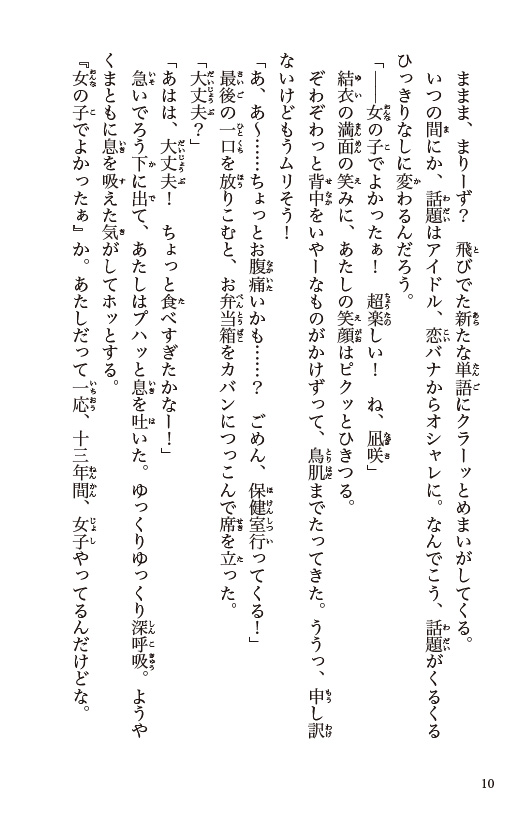 ままま、まりーず？　飛びでた新たな単語にクラーッとめまいがしてくる。
いつの間にか、話題はアイドル、恋バナからオシャレに。なんでこう、話題がくるくる
ひっきりなしに変わるんだろう。
「――女の子でよかったぁ！　超楽しい！　ね、凪咲」
結衣の満面の笑みに、あたしの笑顔はピクッとひきつる。
ぞわぞわっと背中をいやーなものがかけずって、鳥肌までたってきた。ううっ、申し訳
ないけどもうムリそう！
「あ、あ～……ちょっとお腹痛いかも……？　ごめん、保健室行ってくる！」
最後の一口を放りこむと、お弁当箱をカバンにつっこんで席を立った。
「大丈夫？」
「あはは、大丈夫！　ちょっと食べすぎたかなー！」
急いでろう下に出て、あたしはプハッと息を吐いた。ゆっくりゆっくり深呼吸。ようや
くまともに息を吸えた気がしてホッとする。
『女の子でよかったぁ』か。あたしだって一応、十三年間、女子やってるんだけどな。
10